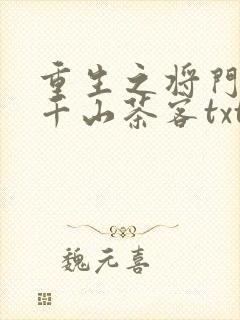 重生之将門
千山茶客txt
魏元喜